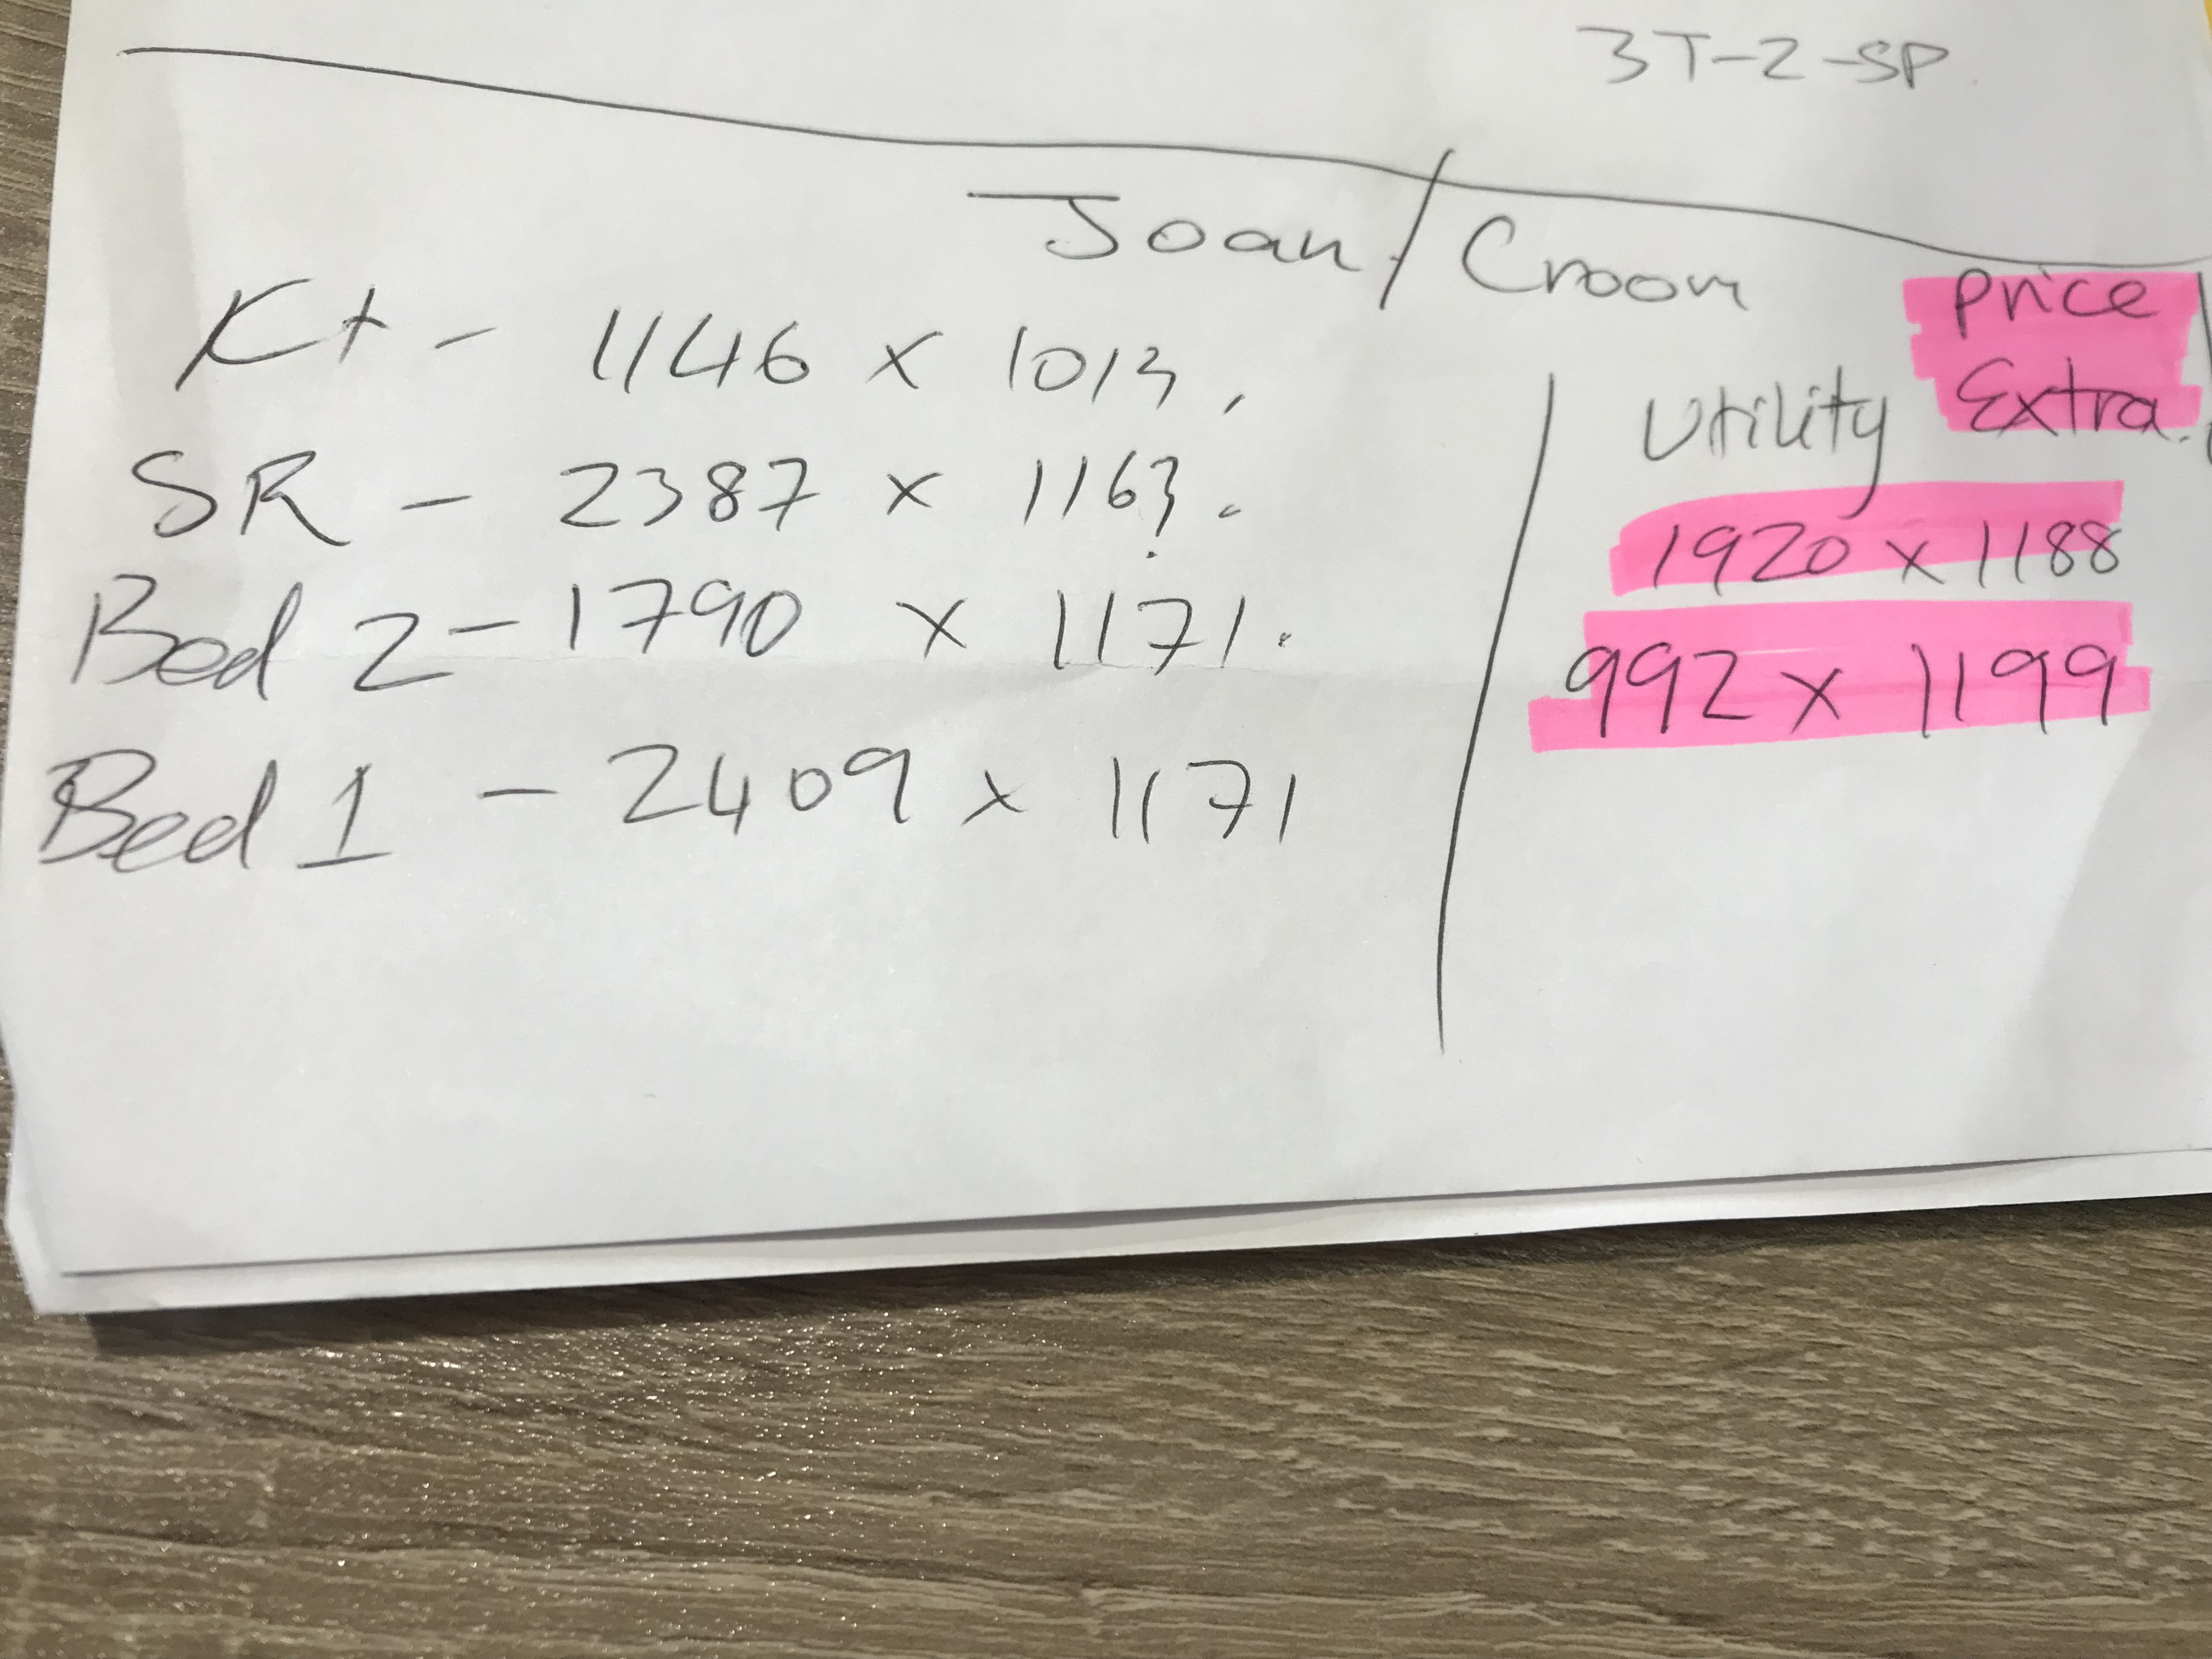 3T-2-SP
Joan/Croom
Kt - 1146 x 1013,
SR - 2387 x 1163.
Bed 2 - 1790 x 1171.
Bed 1 - 2409 x 1171
Price
Utility Extra.
1920 x 1188
992 x 1199